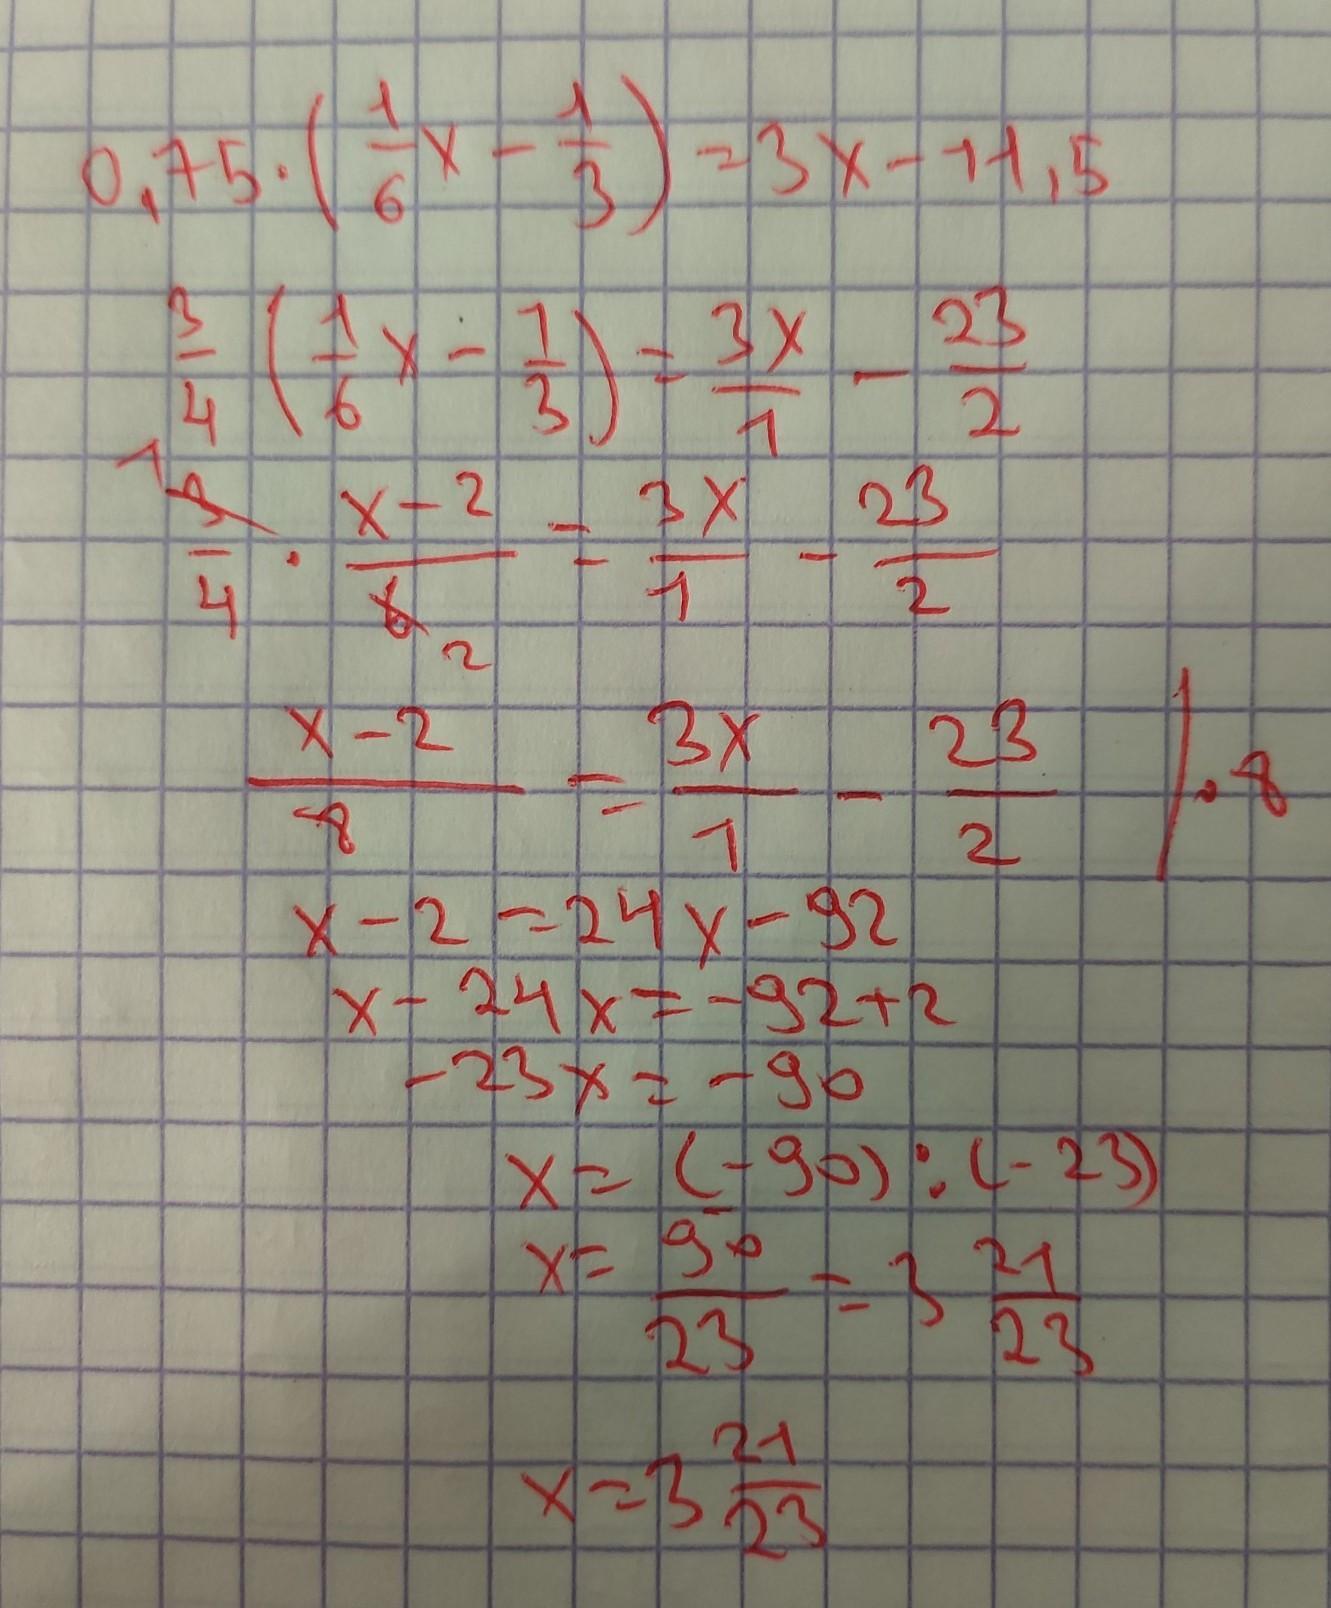 0,75·(1/6 x − 1/3) = 3x − 11,5
3/4 (1/6 x − 1/3) = 3x/1 − 23/2
1 3/4 · (x − 2)/6 2 = 3x/1 − 23/2
(x − 2)/8 = 3x/1 − 23/2 |·8
x − 2 = 24x − 92
x − 24x = −92 + 2
−23x = −90
x = (−90) : (−23)
x = 90/23 = 3 21/23
x = 3 21/23